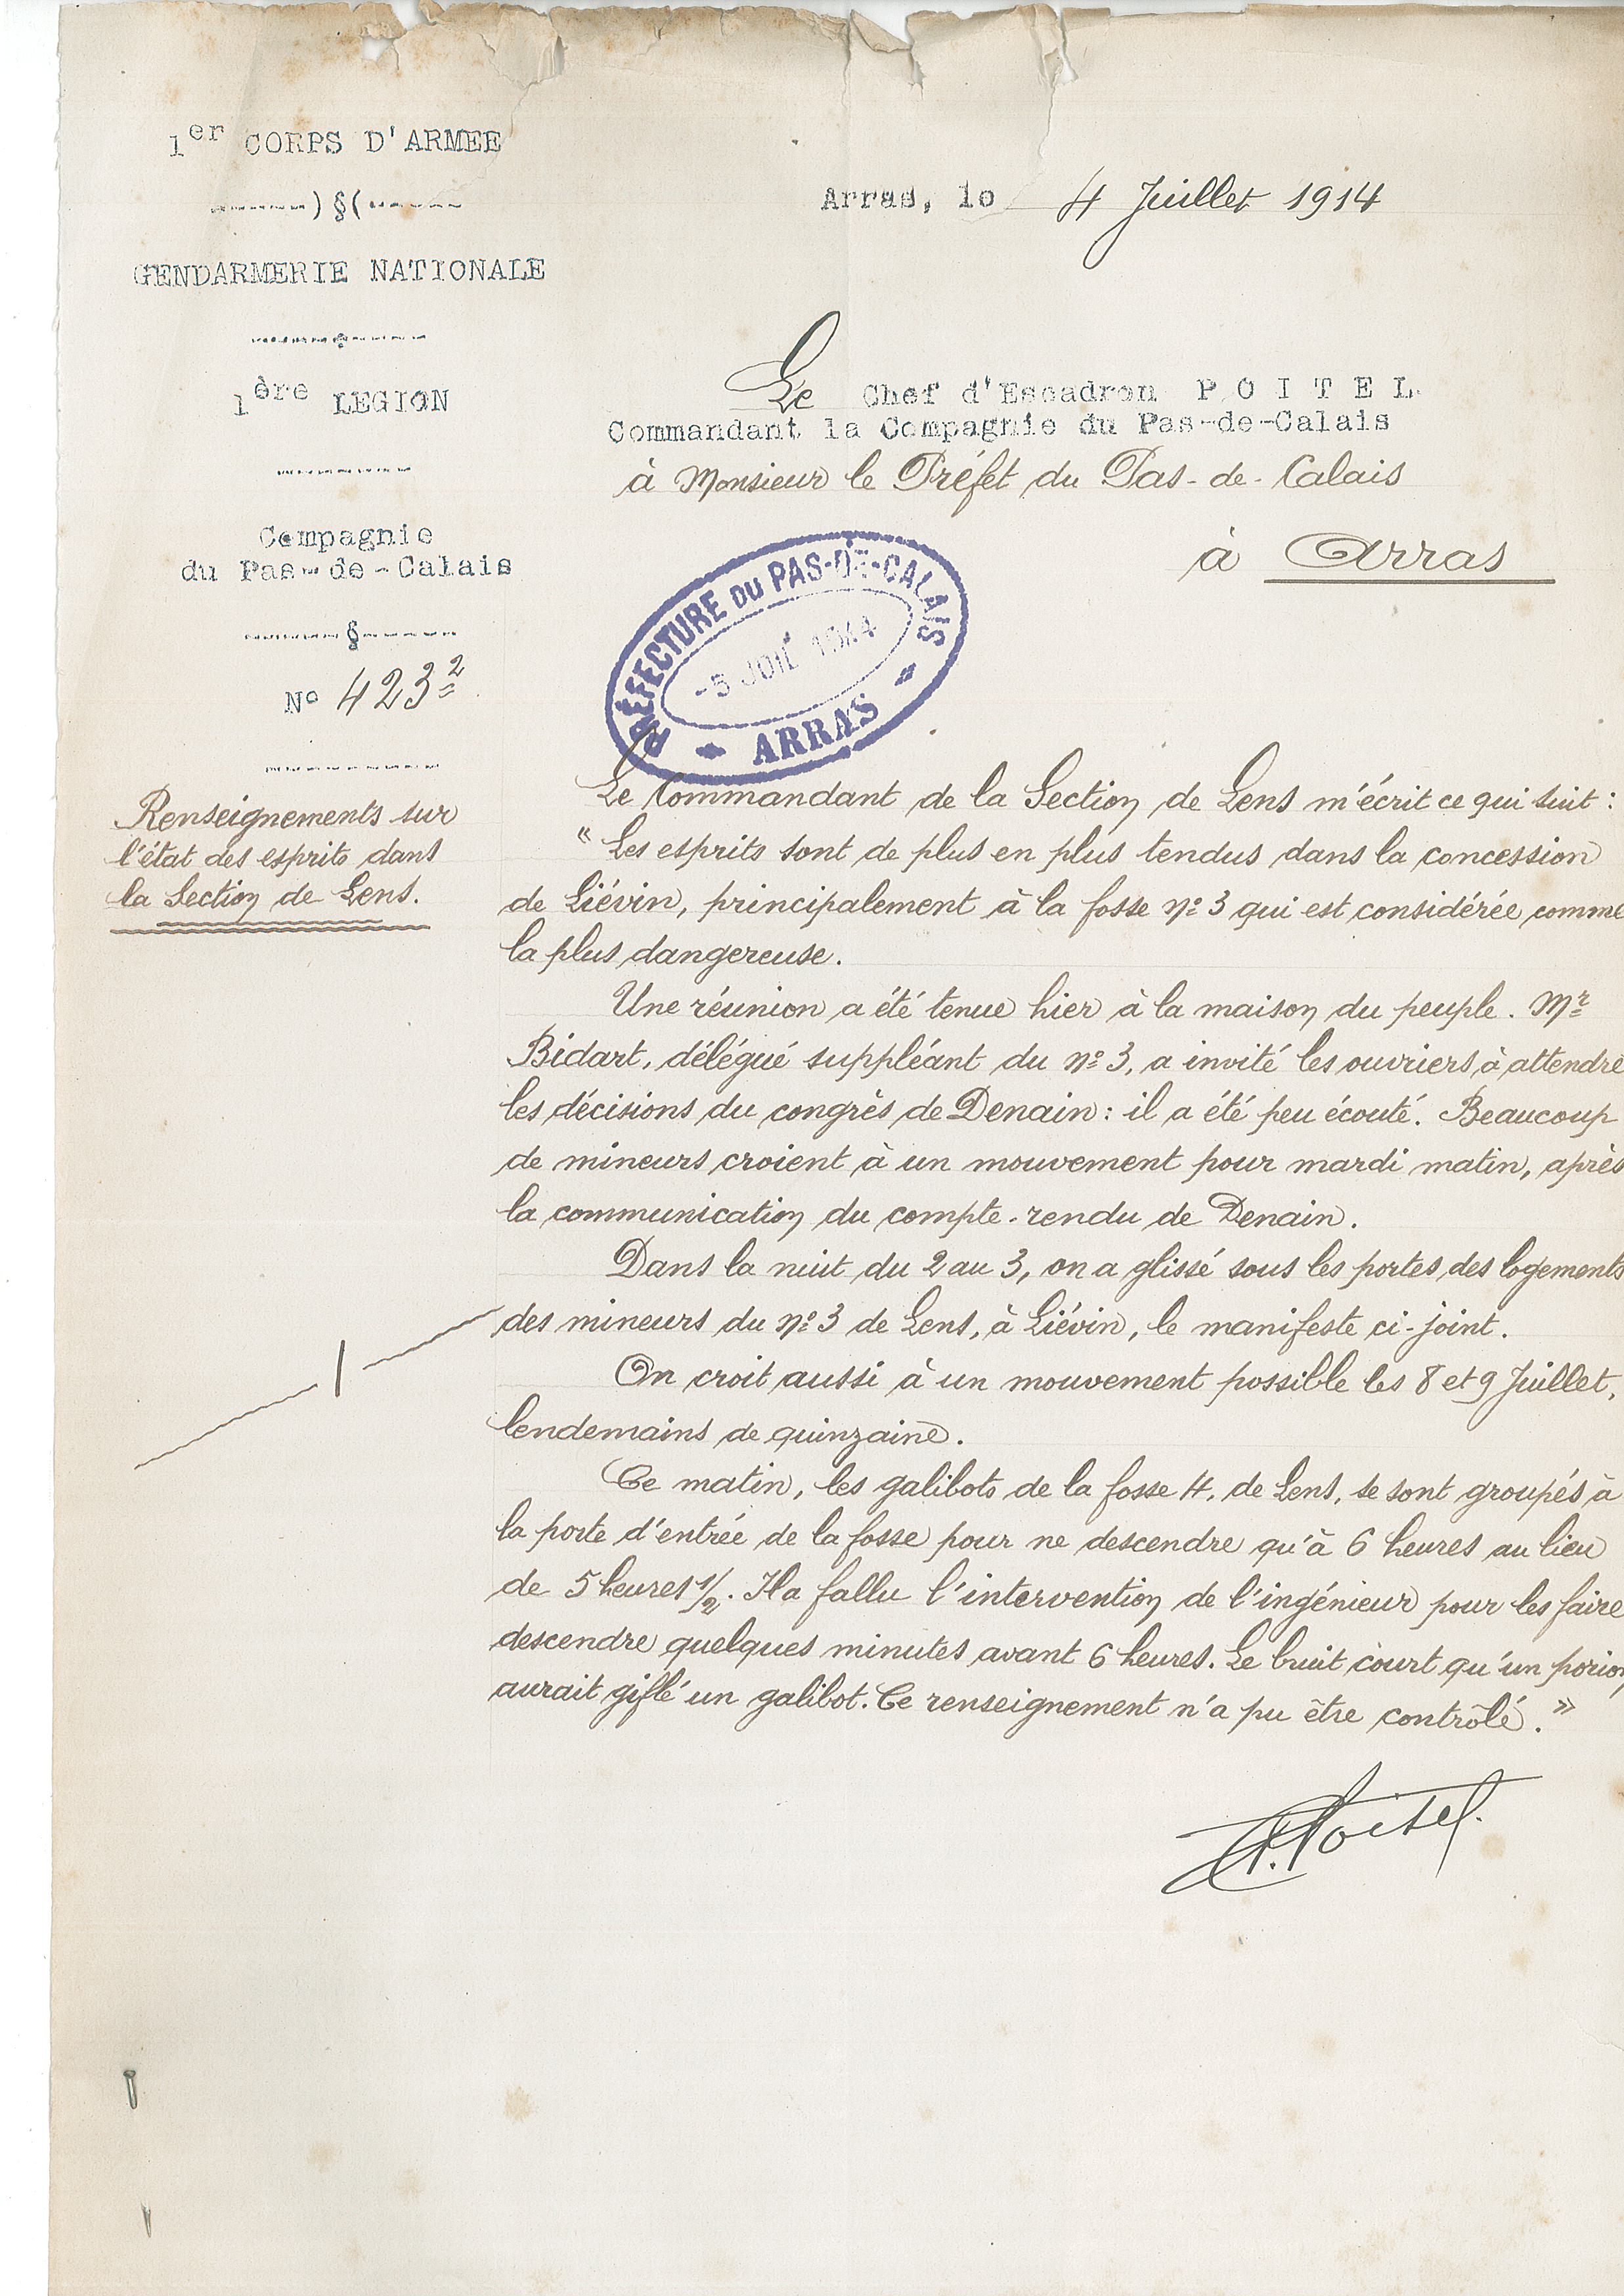 1er CORPS D'ARMEE
-------)§(-------
GENDARMERIE NATIONALE
1ère LEGION
Compagnie
du Pas-de-Calais
-------§-------
No 423 2
Renseignements sur
l'état des esprits dans
la Section de Lens.
Arras, le 4 Juillet 1914
Le Chef d'Escadron P O I T E L
Commandant la Compagnie du Pas-de-Calais
à Monsieur le Préfet du Pas-de-Calais
à Arras
PRÉFECTURE DU PAS-DE-CALAIS
-5 JUIL 1914
ARRAS
Le Commandant de la Section de Lens m'écrit ce qui suit :
"Les esprits sont de plus en plus tendus dans la concession
de Liévin, principalement à la fosse No 3 qui est considérée comme
la plus dangereuse.
Une réunion a été tenue hier à la maison du peuple. Mr
Bidart, délégué suppléant du No 3, a invité les ouvriers à attendre
les décisions du congrès de Denain : il a été peu écouté. Beaucoup
de mineurs croient à un mouvement pour mardi matin, après
la communication du compte-rendu de Denain.
Dans la nuit du 2 au 3, on a glissé sous les portes des logements
des mineurs du No 3 de Lens, à Liévin, le manifeste ci-joint.
On croit aussi à un mouvement possible les 8 et 9 Juillet,
lendemains de quinzaine.
Ce matin, les galibots de la fosse 4, de Lens, se sont groupés à
la porte d'entrée de la fosse pour ne descendre qu'à 6 heures au lieu
de 5 heures 1/2. Il a fallu l'intervention de l'ingénieur pour les faire
descendre quelques minutes avant 6 heures. Le bruit court qu'un porion
aurait giflé un galibot. Ce renseignement n'a pu être contrôlé."
Poitel